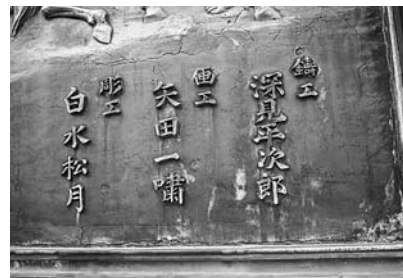 鑄工
深見平次郎
画工
矢田一嘯
彫工
白水松月